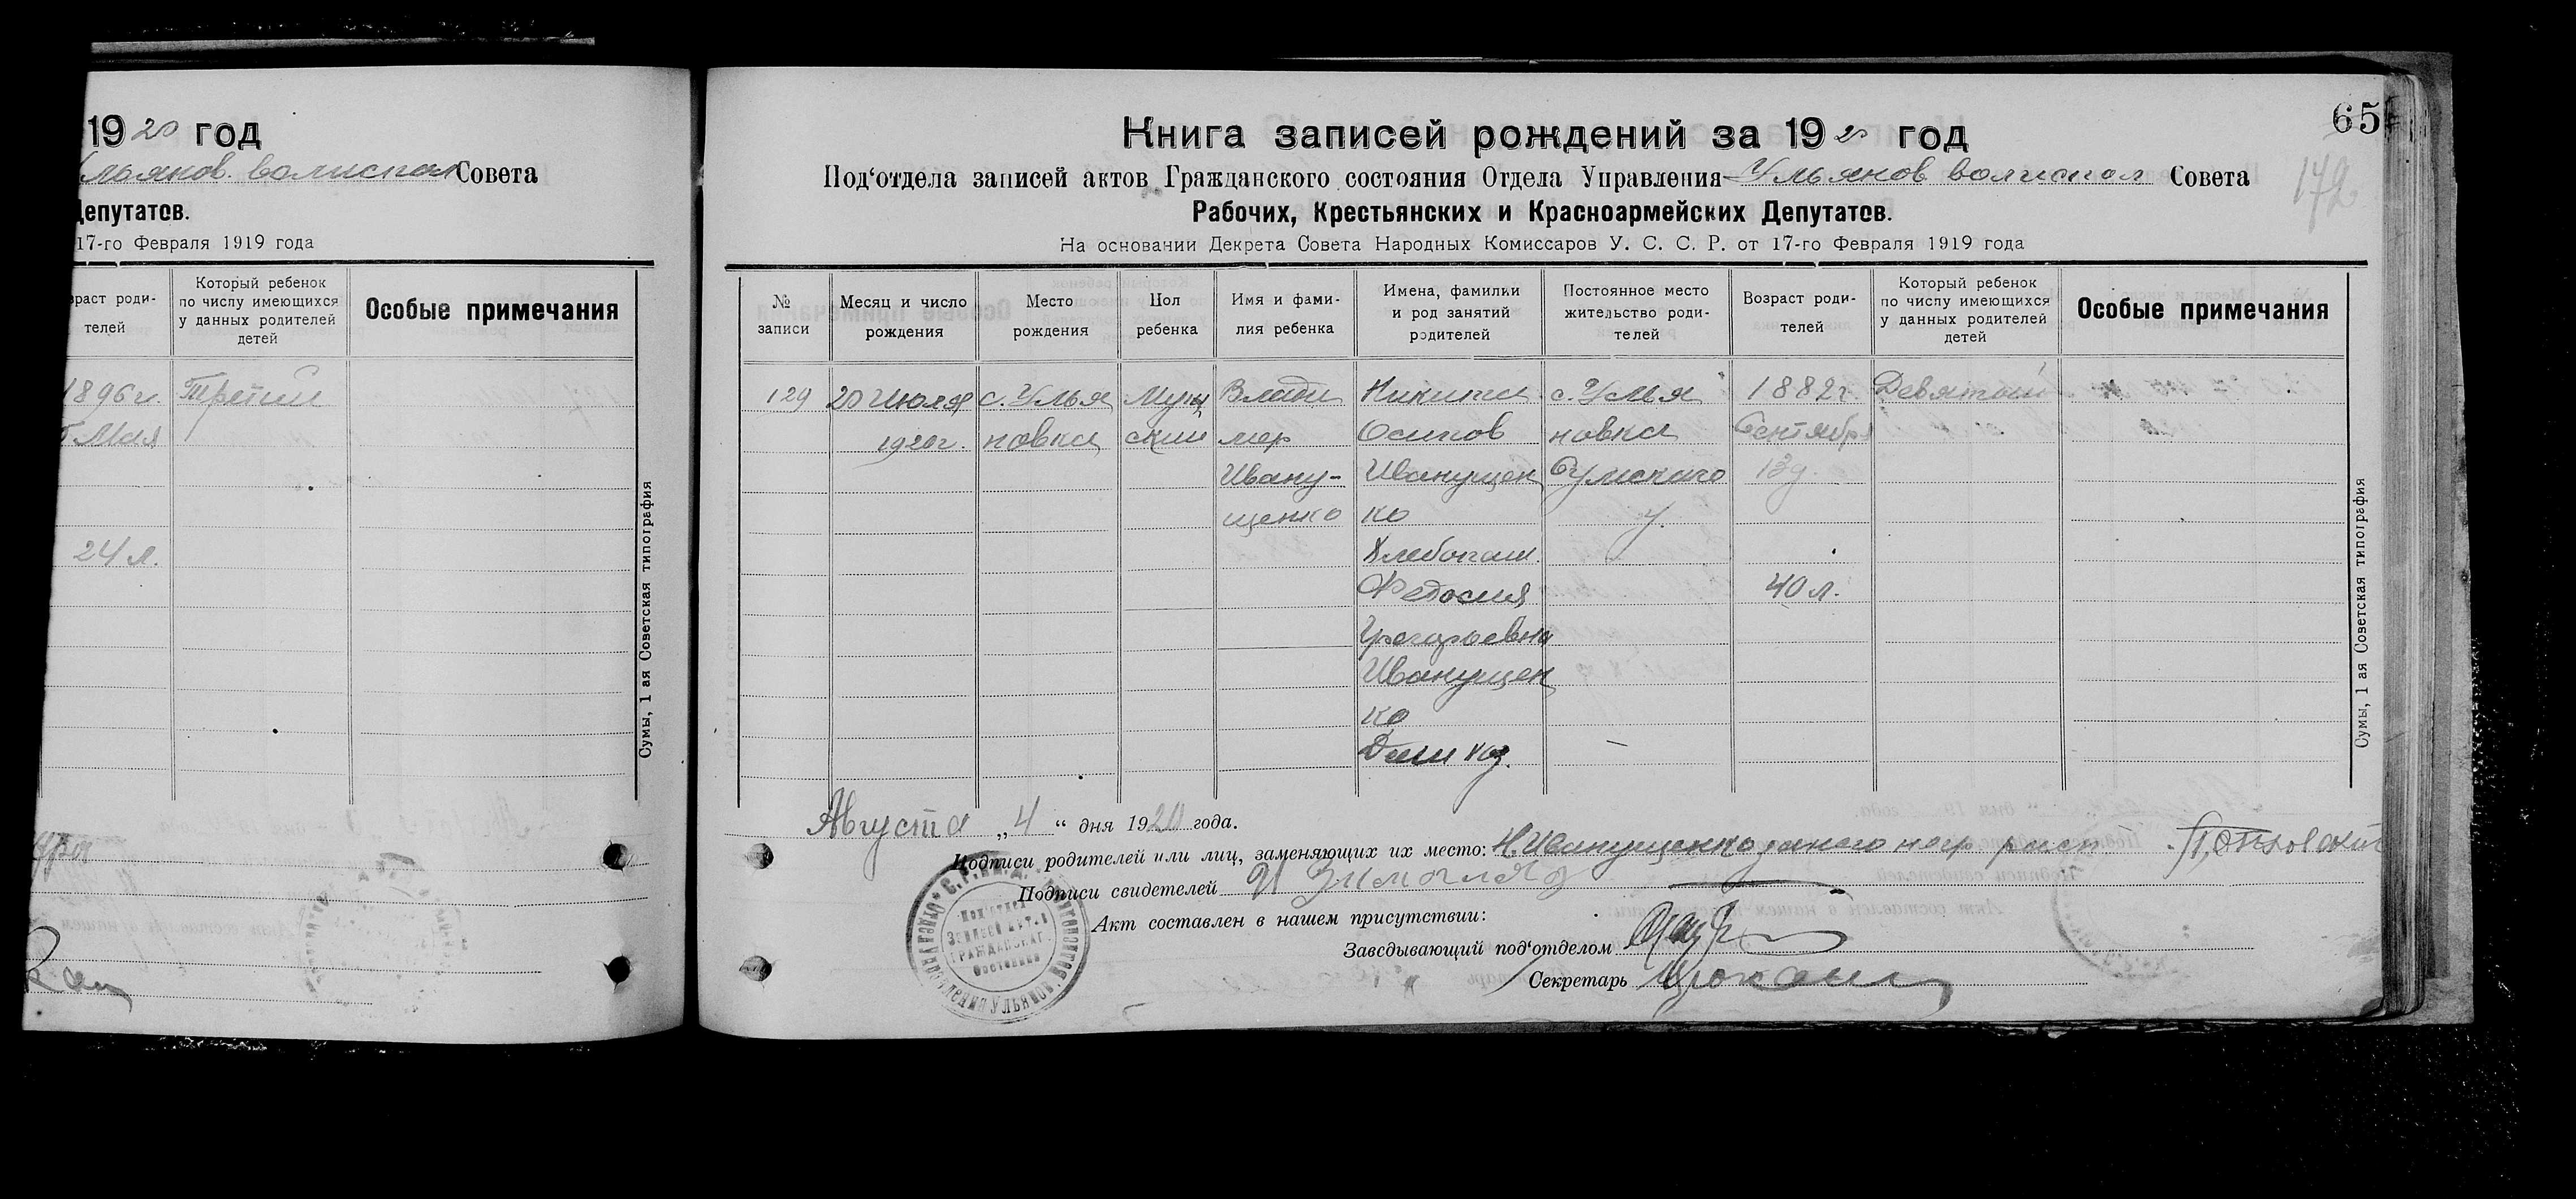 1920 год
Совета
Депутатов.
17-го Февраля 1919 года
раст роди-
телей
Который ребенок
по числу имеющихся
у данных родителей
детей
Особые примечания
1896 г. Третий
Мая
24 л.
Сумы, 1 ая Советская типография
65
172
Книга записей рождений за 1920 год
Под‘отдела записей актов Гражданского состояния Отдела Управления Ульянов волиспол Совета
Рабочих, Крестьянских и Красноармейских Депутатов.
На основании Декрета Совета Народных Комиссаров У. С. С. Р. от 17-го Февраля 1919 года
№
записи
Месяц и число
рождения
Место
рождения
Пол
ребенка
Имя и фами-
лия ребенка
Имена, фамилии
и род занятий
родителей
Постоянное место
жительство роди-
телей
Возраст роди-
телей
Который ребенок
по числу имеющихся
у данных родителей
детей
Особые примечания
129
20 Июля
1920 г.
с. Улья
новка
Муж
ский
Влади
мер
Ивану-
щенко
Никита
Осипов
Иванущен
ко
Хлебопаш.
Федосия
Григорьевна
Иванущен
ко
с. Улья
новка
Сумского
у.
1882 г.
Сентября
13 д.
40 л.
Девятый
Августа „4“ дня 1920 года.
Подписи родителей или лиц, заменяющих их место: Н. Иванущенко
Подписи свидетелей
Акт составлен в нашем присутствии:
Заведывающий под‘отделом
Секретарь
Сумы, 1 ая Советская типография